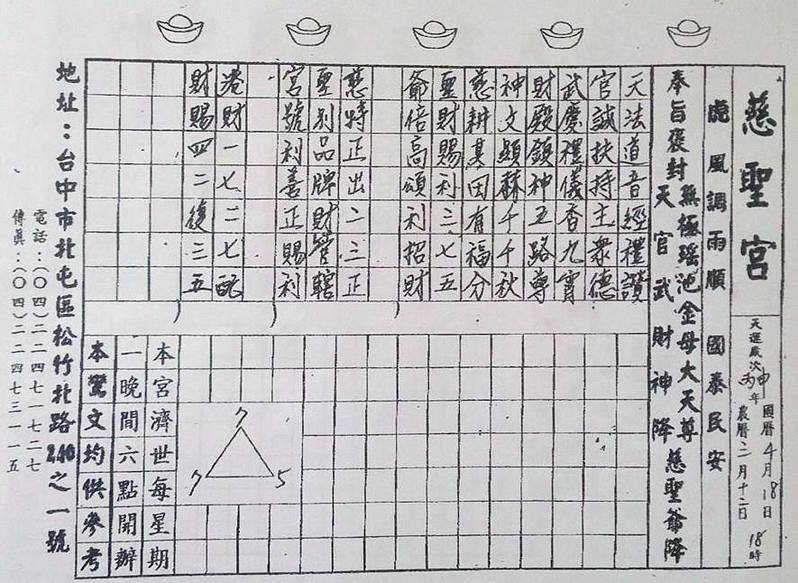 慈聖宮
天運歲次丙申年
國曆4月18日
農曆三月十二日
18時
虎風調雨順 國泰民安
奉旨褒封
無極瑤池金母大天尊
天官武財神降
慈聖爺降
天法道音經禮讚
官誠扶持主眾德
武慶禮儀香九霄
財殿鎮神五路尊
神文顯赫千千秋
慈耕其田有福分
聖財賜利三七五
爺倍高頌利招財
慈特正出二三正
聖別品牌財管轄
宮號利善正賜利
港財一七二七配
財賜四二復三五
7
7
5
本宮濟世每星期
一晚間六點開辦
本鸞文均供參考
地址:台中市北屯區松竹北路240之一號
電話:(〇四)二二四七一七二七
傳眞:(〇四)二二四七三一一五